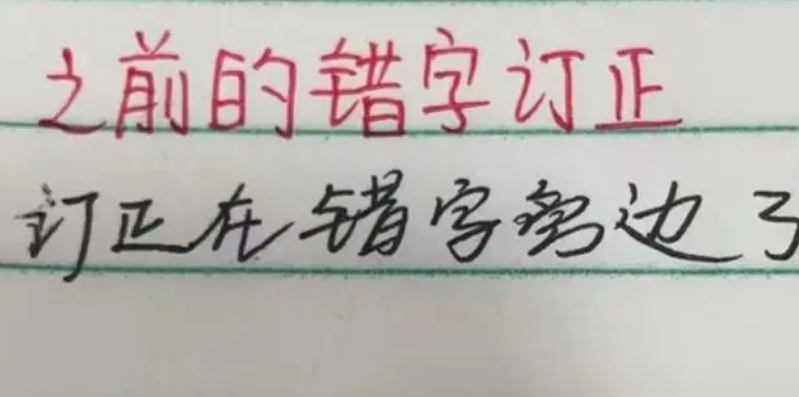 之前的错字订正
订正在错字旁边了